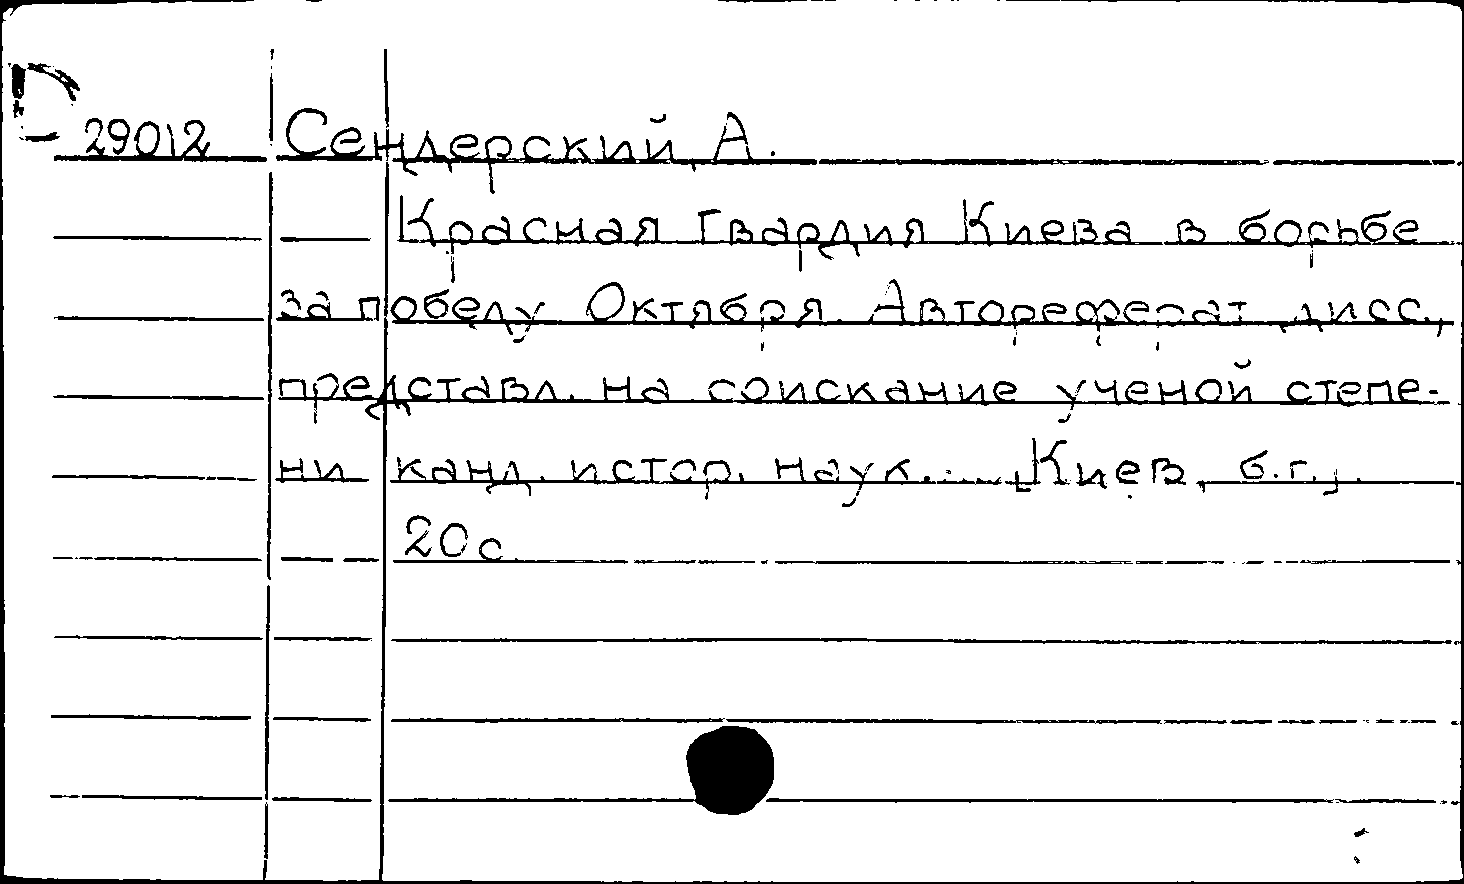 29012 Сендерский, А.
Красная Гвардия Киева в борьбе
за победу Октября. Автореферат дисс.,
представл. на соискание ученой степе-
ни канд. истор. наук..... Киев, б.г.,
20 с.